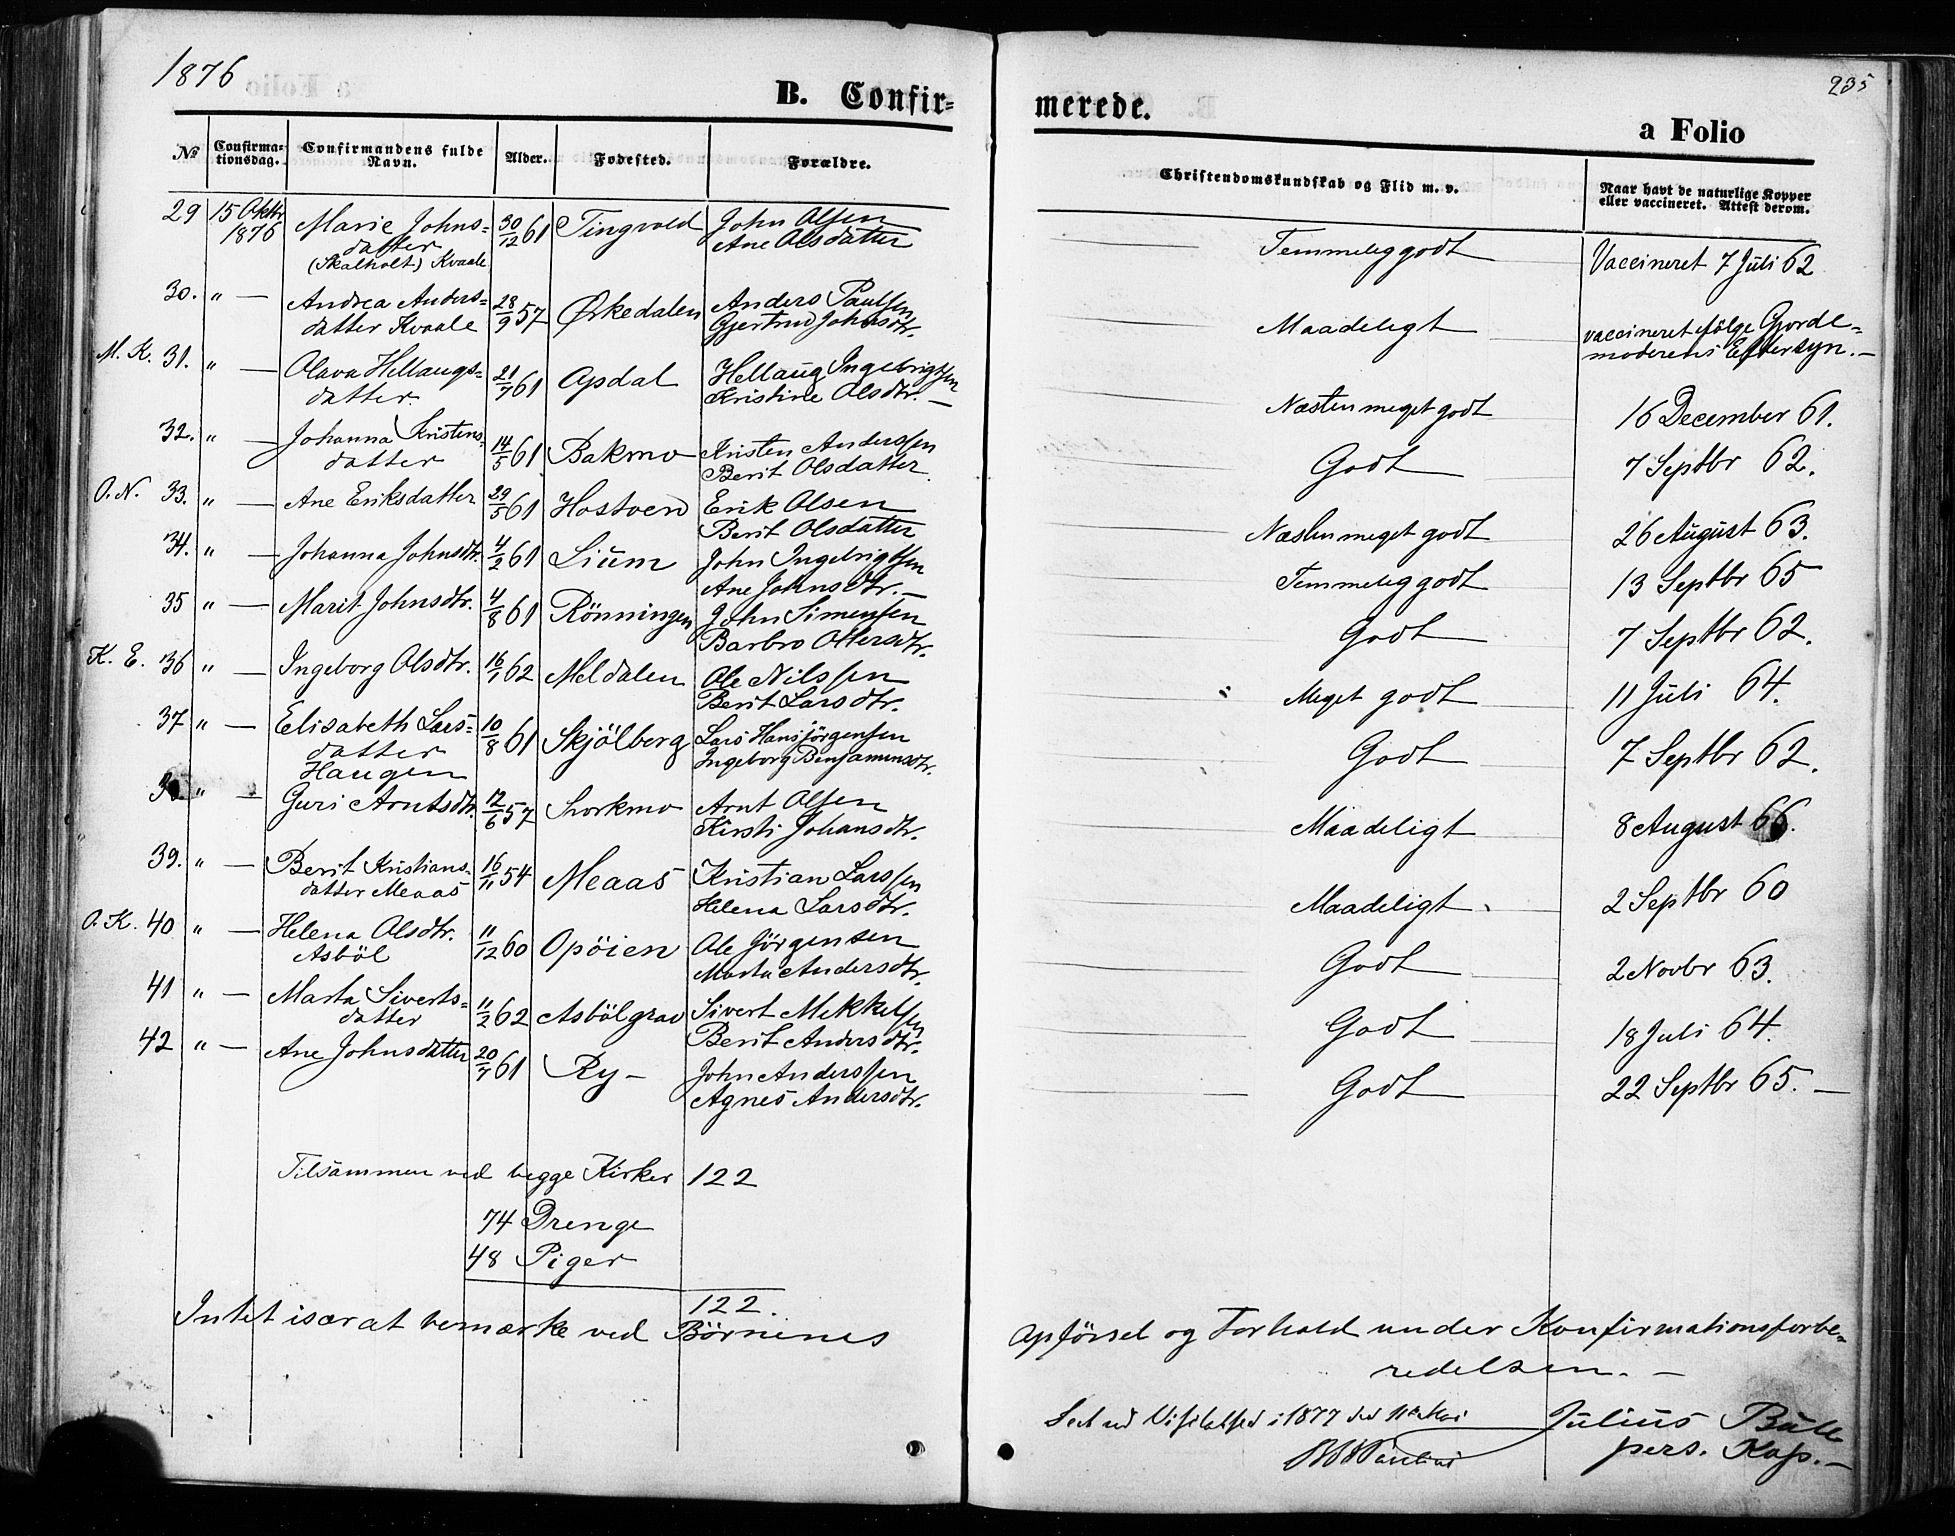 1876
235
B. Confirmerede.
a Folio
No
Confirmationsdag.
Confirmandens fulde Navn.
Alder.
Fødested.
Forældre.
Christendomskundskab og Flid m. v.
Naar havt de naturlige Kopper eller vaccineret. Attest derom.
29 15 Oktbr 1876 Marie Johnsdatter (Skalholt) Kvaale 30/12 61 Tingvold John Olsen Ane Olsdatter Temmelig godt Vaccineret 7 Juli 62
30. " — Andrea Andersdatter Kvaale 28/9 57 Ørkedalen Anders Paulsen Gjertrud Johnsdtr. Maadeligt vaccineret ifølge Gjordemoderens Eftersyn. —
M. K. 31. " — Olava Hellaugsdatter 21/7 61 Opdal Hellaug Ingebrigtsen Kristine Olsdtr. — Næsten meget godt 16 December 61.
32. " — Johanna Kristensdatter 14/5 61 Bakmo Kristen Anderssen Berit Olsdatter. Godt 7 Septbr 62.
O. N. 33. " — Ane Eriksdatter 29/5 61 Hostven Erik Olsen Berit Olsdatter Næsten meget godt 26 August 63.
34. " — Johanna Johnsdtr. 4/2 61 Lium John Ingebrigtsen Ane Johnsdtr. — Temmelig godt 13 Septbr 65
35 " — Marit Johnsdtr. 4/8 61 Rönningen John Simensen Barbro Ottersdtr. Godt 7 Septbr 62.
K. E. 36 " — Ingeborg Olsdtr. 16/1 62 Meldalen Ole Nilssen Berit Larsdtr. Meget godt 11 Juli 64.
37 " — Elisabeth Larsdatter Haugen 10/8 61 Skjölberg Lars Hansjörgensen Ingeborg Benjaminsdtr. Godt 7 Septbr 62.
38 " — Guri Arntsdtr. 12/6 57 Snorkmo Arnt Olsen Kirsti Johansdtr. Maadeligt 8 August 66.
39. " — Berit Kristiansdatter Meaas 16/11 54 Meaas Kristian Larssen Helena Larsdtr. Maadeligt. 2 Septbr 60
O. K. 40 " — Helena Olsdtr. Asböl 11/12 60 Opöien Ole Jörgensen Marta Andersdtr. Godt 2 Novbr 63.
41 " — Marta Sivertsdatter 11/2 62 Asbölgrav Sivert Mekkelsen Berit Andersdtr. Godt 18 Juli 64.
42 " — Ane Johnsdatter 20/7 61 Ry — John Anderssen Agnes Andersdtr. Godt 22 Septbr 65. —
Tilsammen ved begge Kirker 122
74 Drenge
48 Piger
122.
Intet især at bemærke ved Börnenes Opförsel og Forhold under Konfirmationsforberedelsen. —
Seet ved Visitatsen i 1877 den 11te Mai
Julius Bull
pers. Kap. —